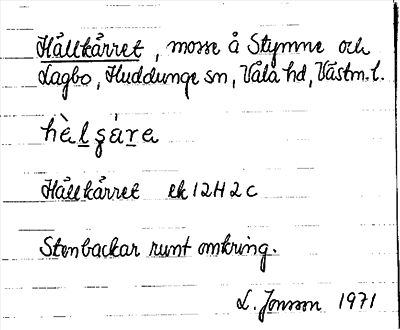 Hållkårret, mosse å Stymne och
Lagbo, Huddunge sn, Våla hd, Västm. l.
hèlʂàra
Hållkårret ek 12H2c
Stenbackar runt omkring.
L. Jonsson 1971